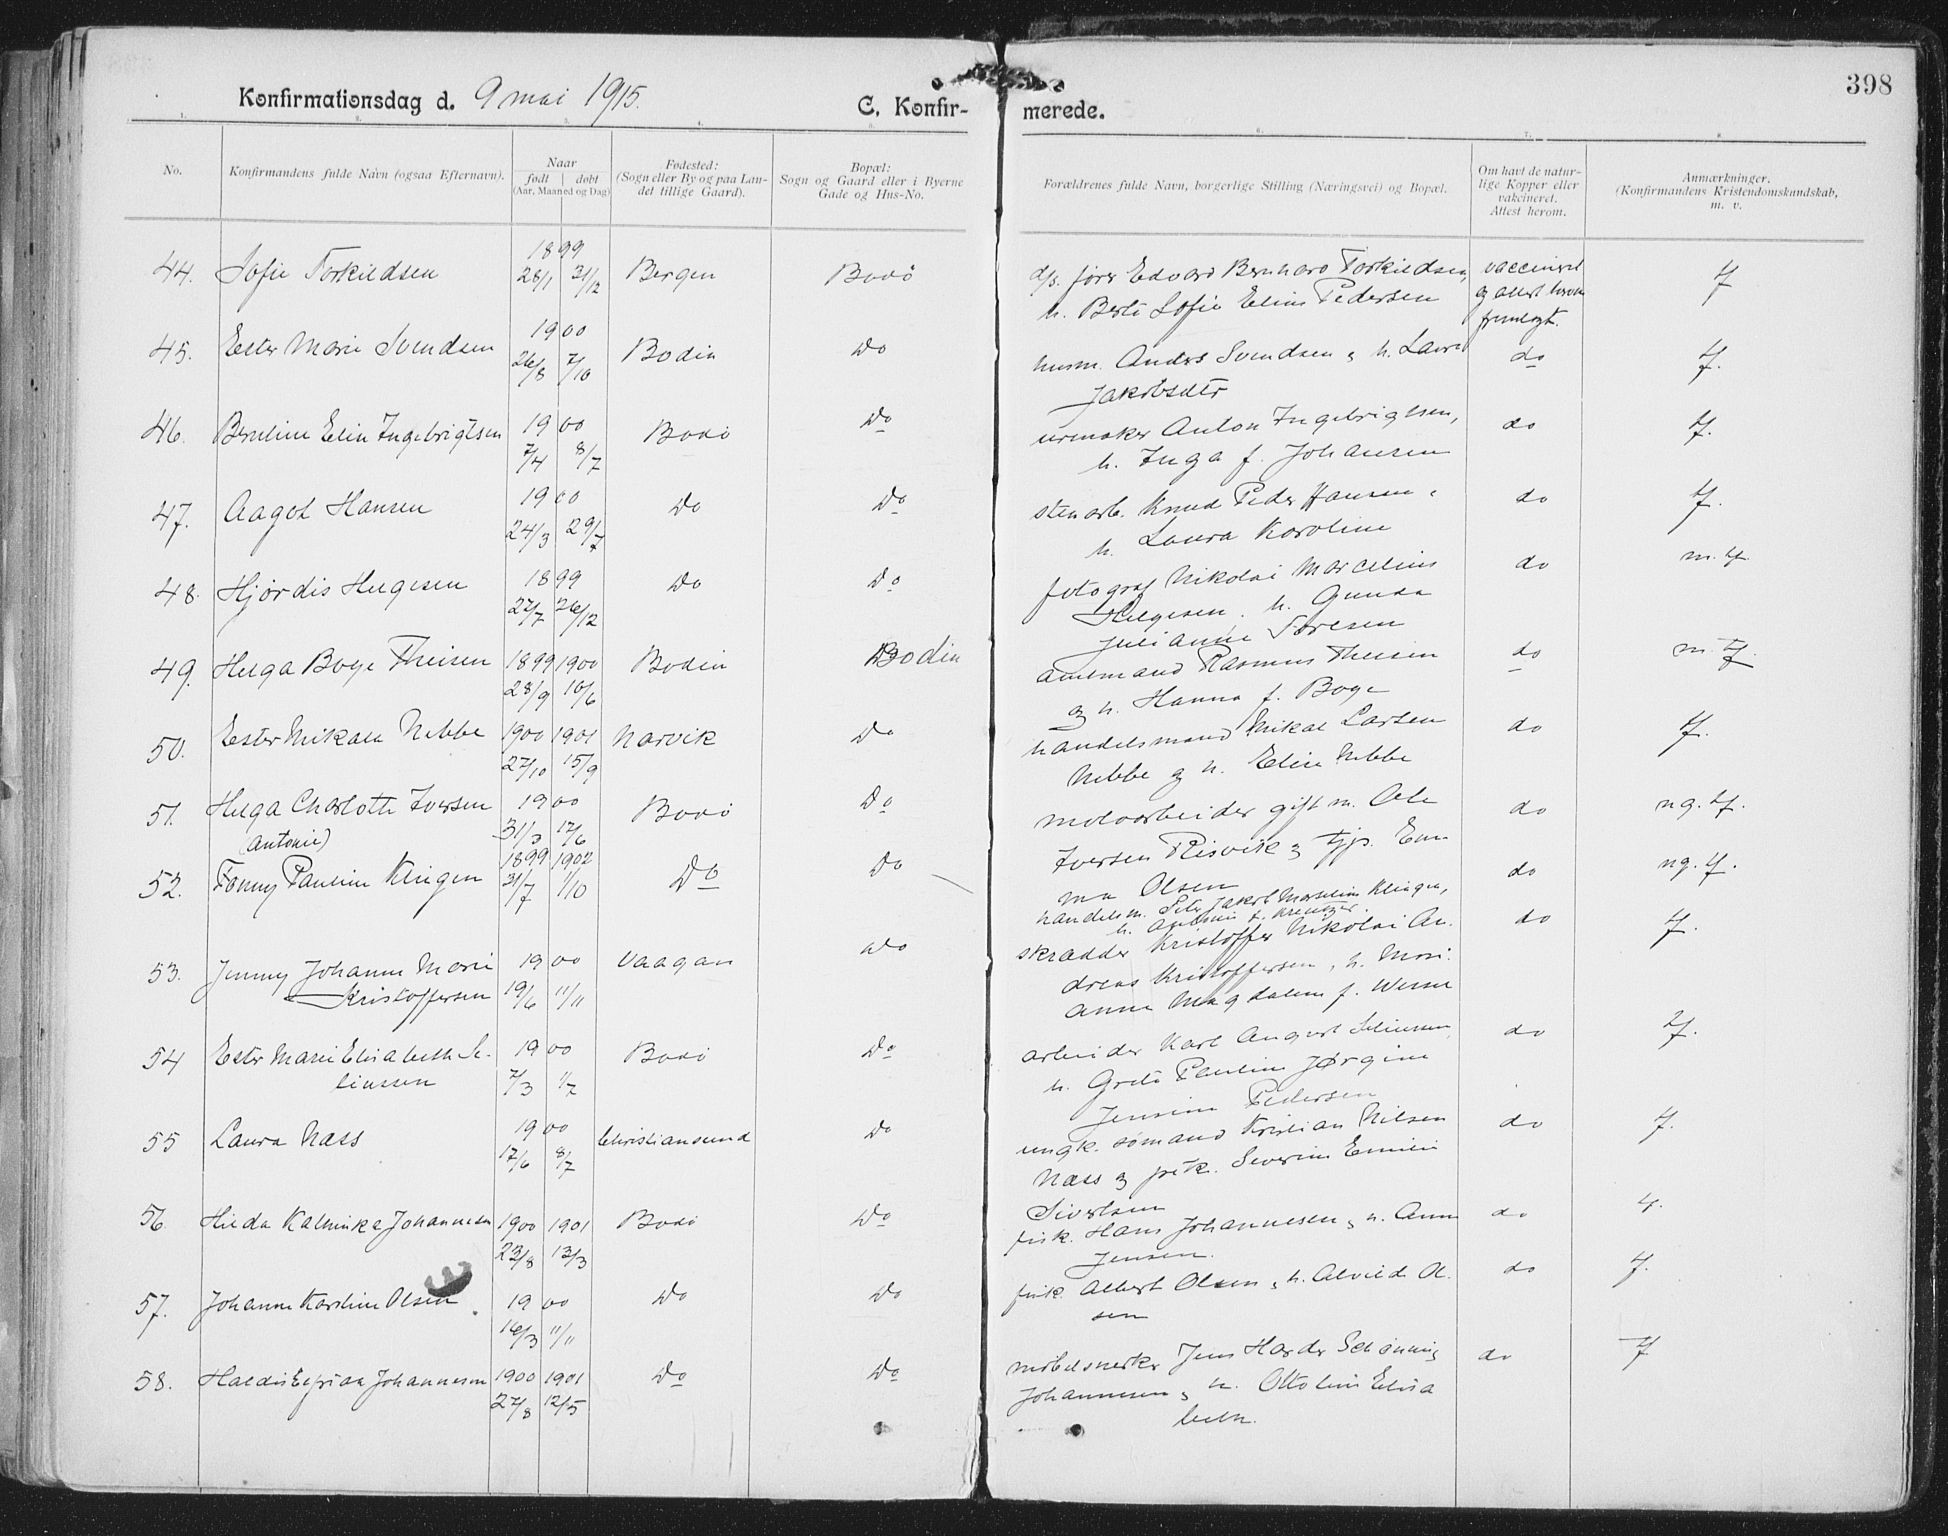 398
Konfirmationsdag d. 9 mai 1915.
C. Konfir-
merede.
1. 2. 3. 4. 5. 6. 7. 8.
No.
Konfirmandens fulde Navn (ogsaa Efternavn).
Naar
født | døbt
(Aar, Maaned og Dag)
Fødested:
(Sogn eller By og paa Lan-
det tillige Gaard).
Bopæl:
Sogn og Gaard eller i Byerne
Gade og Hus-No.
Forældrenes fulde Navn, borgerlige Stilling (Næringsvei) og Bopæl.
Om havt de natur-
lige Kopper eller
vakcineret.
Attest herom.
Anmærkninger.
(Konfirmandens Kristendomskundskab,
m. v.
44. Sofie Torkildsen 1899 28/1 31/12 Bergen Bodö
d/s. förer Edvard Bernhard Torkildsen,
h. Berte Sofie Eline Pedersen
vaccineret
og attest herom
fremlagt.
45. Ester Marie Svendsen 1900 26/8 7/10 Bodin Do
husm. Anders Svendsen & h. Laura
Jakobsdtr
do
46. Berntine Elin Ingebrigtsen 1900 7/4 8/7 Bodö Do
urmaker Anton Ingebrigtsen,
h. Inga f. Johansen
do
47. Aagot Hansen 1900 24/3 29/7 Do Do
stenarb. Knud Peder Hansen,
h. Laura Karoline
do
48. Hjördis Helgesen 1899 27/7 26/12 Do Do
fotograf Nikolai Marcelius
Helgesen, h. Gunda
Julianne Toresen
do
49. Helga Boye Theisen 1899 1900 28/9 10/6 Bodin Bodin
amtmand Rasmus Theisen
og h. Hanna f. Boye
do
50. Ester Mikala Nebbe 1900 1901 27/10 15/9 Narvik Do
handelsmand Mikal Larsen
Nebbe og h. Elin Nebbe
do
51. Helga Charlotte Iversen
(Antonie)
1900 31/3 17/6 Bodö Do
moloarbeider gift m. Ole
Iversen Risvik & tjp. Em-
ma Olsen
do ng.
52. Fanny Pauline Klingen 1899 1902 31/7 1/10 Do Do
handelsm. Peter Jakob Marselius Klingen,
h. Antonie f. Kreutzer
do ng.
53. Jenny Johanne Marie
Kristoffersen
1900 19/6 11/11 Vaagan Do
skrædder Kristoffer Nikolai An-
dreas Kristoffersen, h. Mari-
anne Magdalene f.
do
54 Ester Marie Elisabeth Se-
liussen
1900 7/3 1/7 Bodö Do
arbeider Karl August Seliussen,
h. Grete Pauline Jørgine
Jensine Pedersen
do
55 Laura Næss 1900 17/6 8/7 Christiansund Do
ungk. sømand Kristian Nilsen
Næss & pike Severine Emilie
Sivertsen
do
56. Hilda Kalminka Johannesen 1900 1901 23/8 13/3 Bodö Do
fisk. Hans Johannesen, & h. Anne
Jensen.
do
57. Johanne Karoline Olsen 1900 16/3 11/11 Do Do
fisk. Albert Olsen, h. Alvilde Ol-
sen
do
58. Haldis Johannesen 1900 1901 27/8 12/5 Do Do
möbelsnekr Jens Harder Schönning
Johannesen & h. Ottoline Elisa
beth.
do